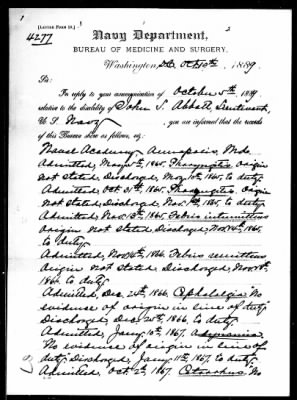 [LETTER FORM 10.]
4277
Navy Department,
BUREAU OF MEDICINE AND SURGERY,
Washington, D.C. Oct 10th, 1889.
Sir:
In reply to your communication of October 5th, 1889
relative to the disability of John S. Abbott, Lieutenant,
U. S. Navy, you are informed that the records
of this Bureau show as follows, viz:
Naval Academy, Annapolis, Md.
Admitted, May 5th, 1865. Pharyngitis origin
not stated, Discharged, May 10th, 1865, to duty.
Admitted, Oct 31st, 1865, Pharyngitis. Origin
not stated, Discharged, Nov. 1st, 1865, to duty.
Admitted, Nov. 13th, 1865, Febris intermittens
origin not stated, Discharged, Nov. 14th, 1865,
to duty.
Admitted, Nov. 1866. Febris remittens
origin not stated, Discharged, Nov.
1866 to duty.
Admitted, Dec. 24th, 1866, Cephalalgia. "No
evidence of origin in line of duty."
Discharged, Dec. 25th, 1866, to duty.
Admitted, Jany. 10th, 1867.
"No evidence of origin in line of
duty." Discharged, Jany. 11th, 1867, to duty.
Admitted, Oct. 2d, 1867. "No